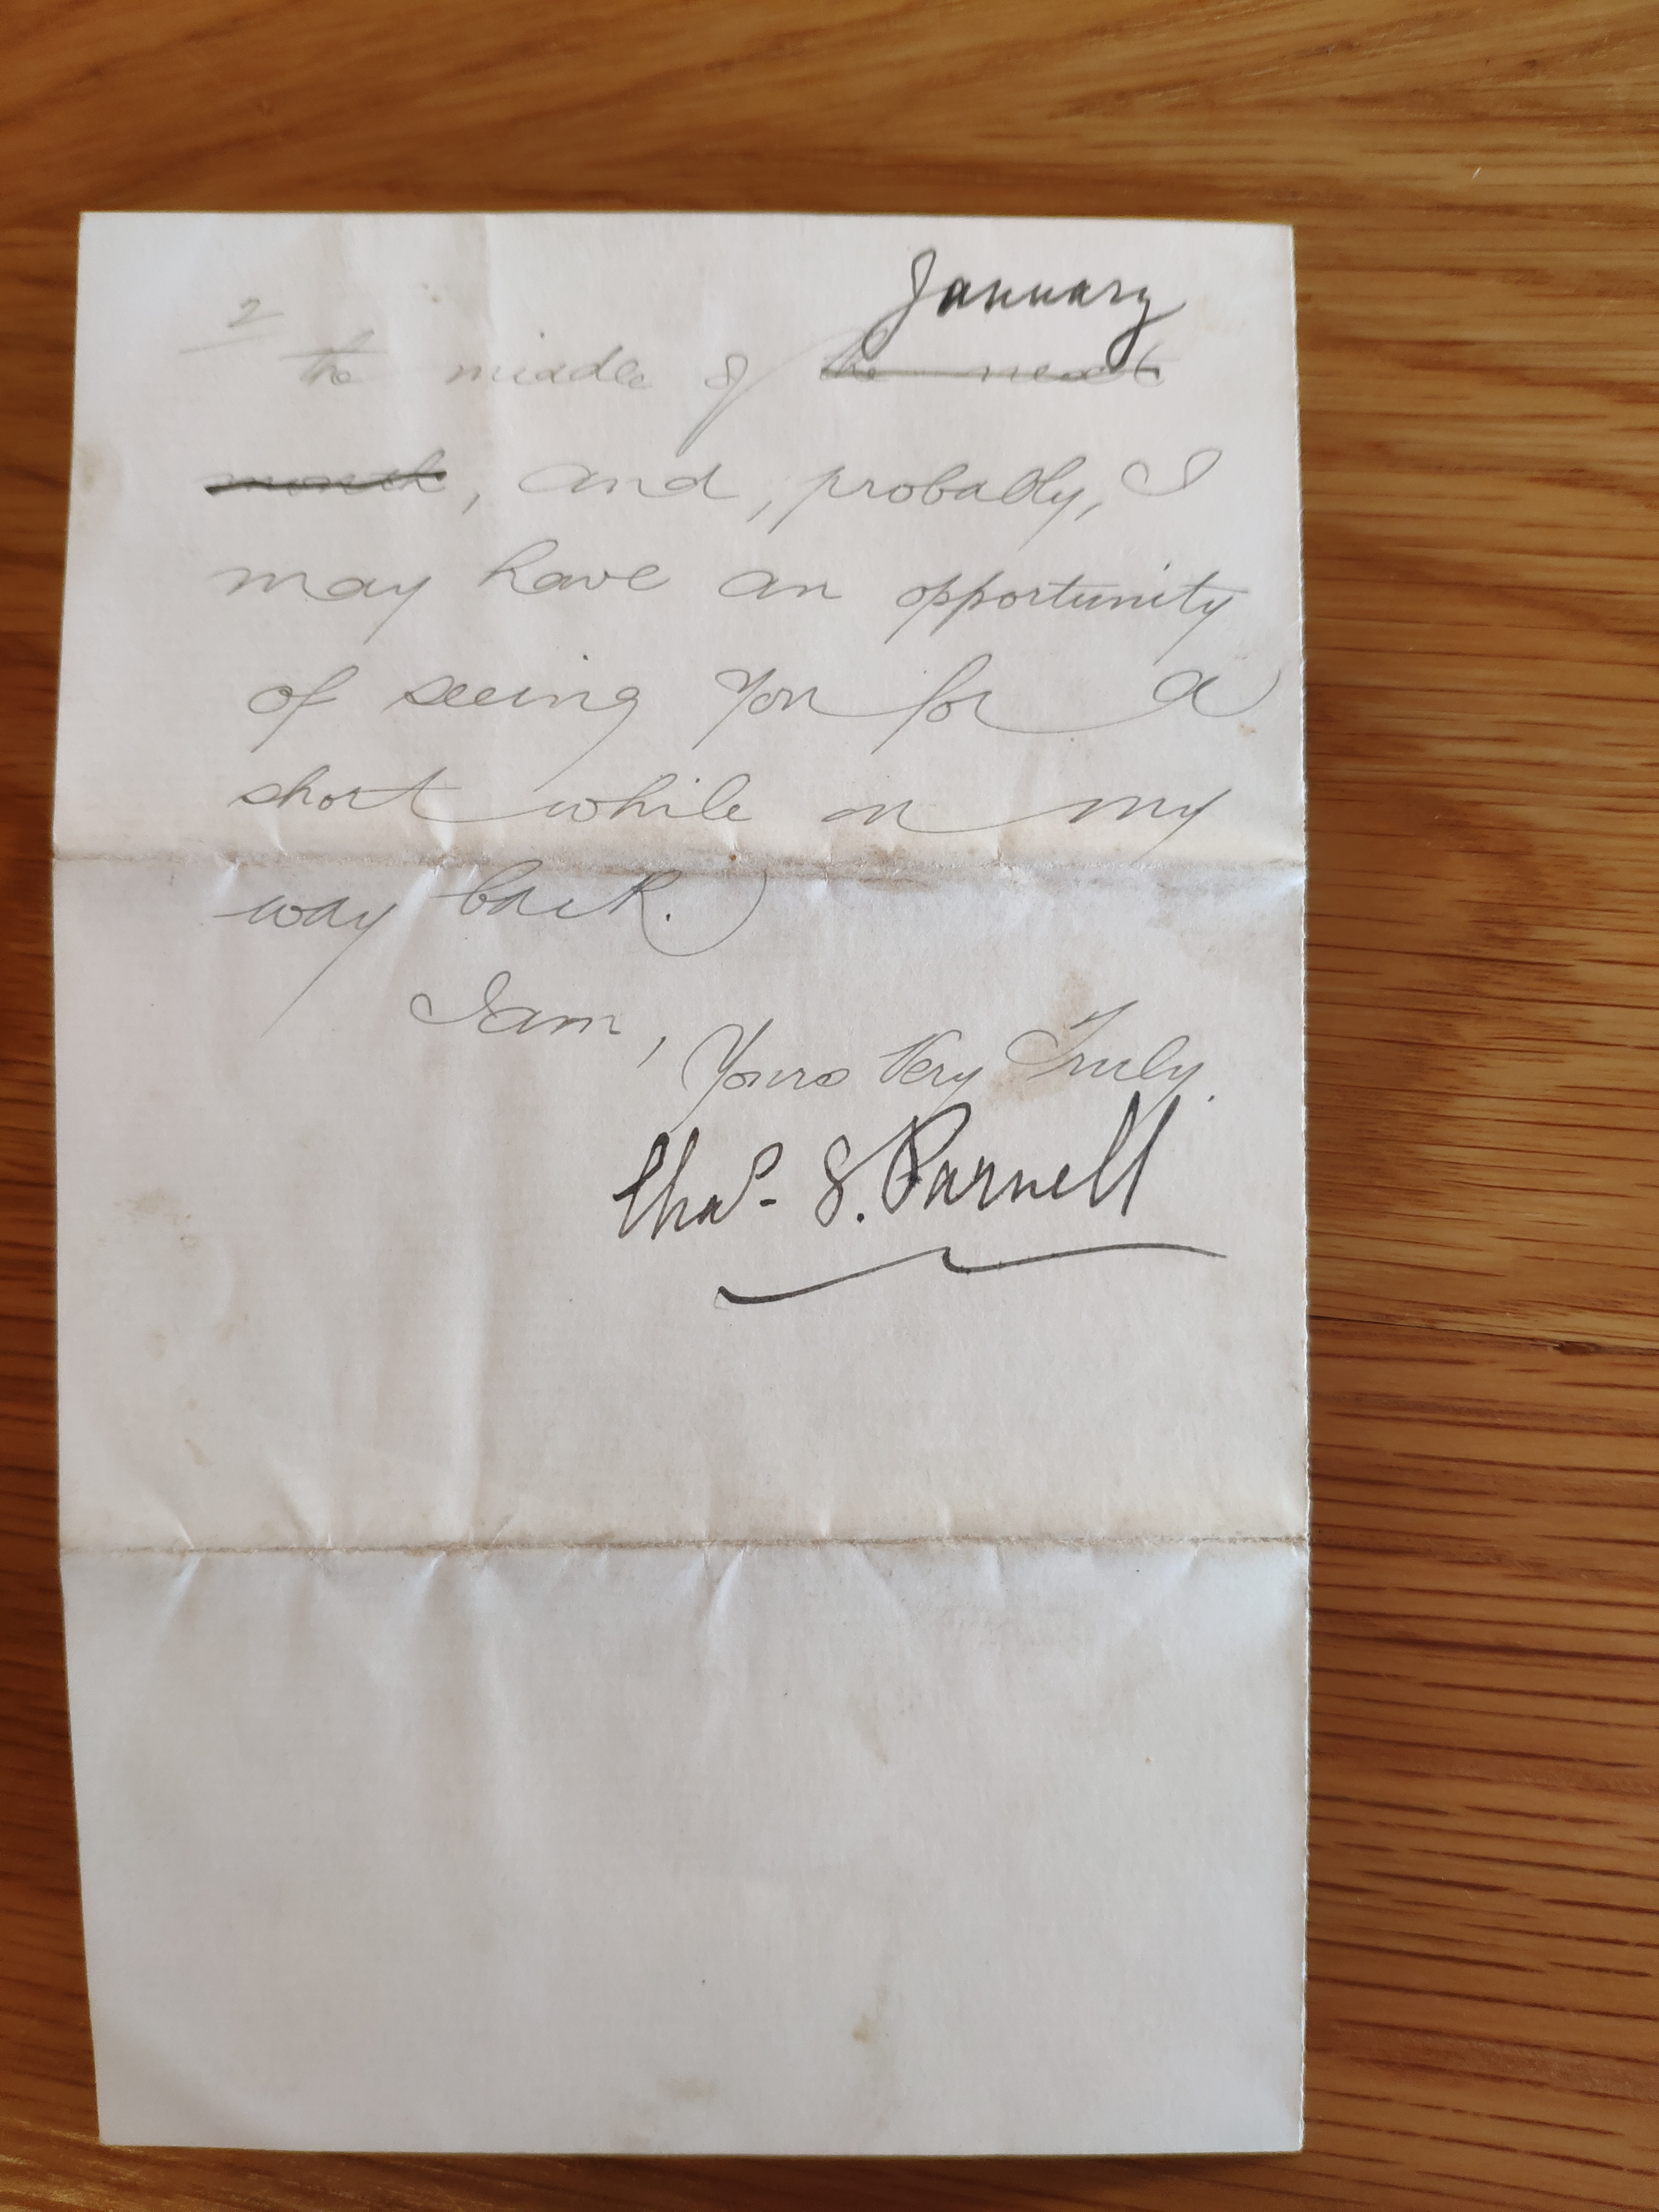 January
2
the middle of the next
month, and, probably, I
may have an opportunity
of seeing you for a
short while on my
way back.
I am,
Yours Very Truly.
Chas. S. Parnell